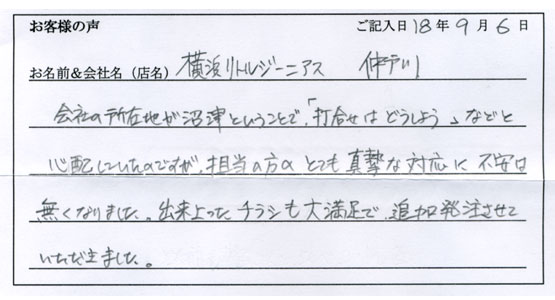 お客様の声 ご記入日 18年 9月 6日
お名前&会社名(店名) 横浜リトルジーニアス 仲戸川
会社の所在地が沼津ということで、「打合せはどうしよう」などと
心配していたのですが、担当の方のとても真摯な対応に不安は
無くなりました。出来上ったチラシも大満足で、追加発注させて
いただきました。